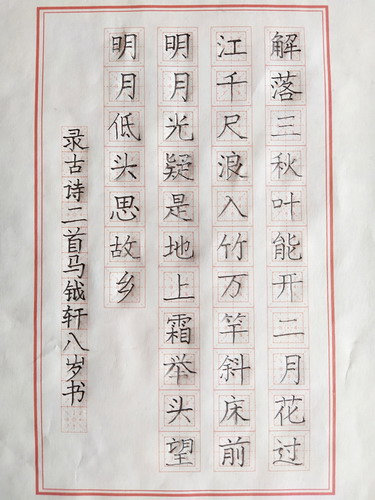 解落三秋叶能开二月花过
江千尺浪入竹万竿斜床前
明月光疑是地上霜举头望
明月低头思故乡
录古诗二首马钺轩八岁书